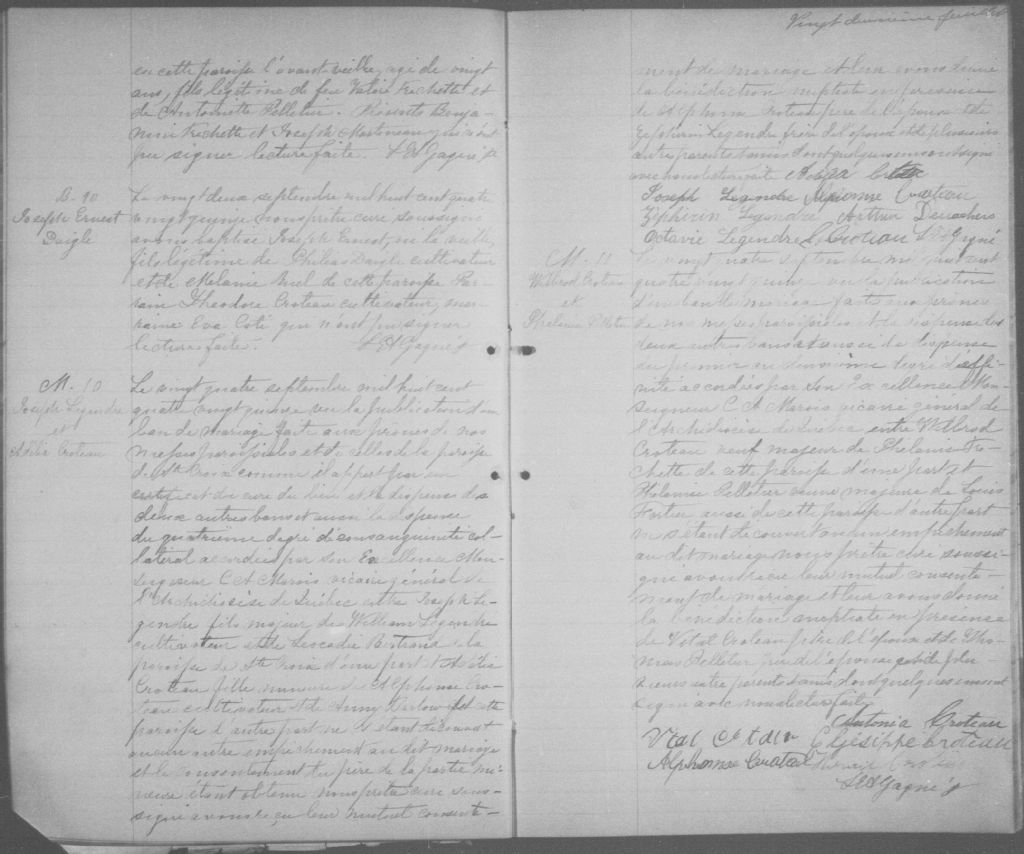 en cette paroisse l'avant-veille, agé de vingt
ans, fils légitime de feu Valère Frechette et
de Antoinette Pelletier. Présents Benja-
min Frechette et Joseph Martineau qui n'ont
pu signer lecture faite. L H Gagné
B. 90
Joseph Ernest
Daigle
Le vingt deux septembre mil huit cent quatre
vingt quinze nous prêtre curé soussigné
avons baptisé Joseph Ernest, né la veille,
fils légitime de Philias Daigle cultivateur
et de Mélanie de cette paroisse. Par-
rain Theodore Croteau cultivateur, mar-
raine Eva Coté qui n'ont pu signer
lecture faite. L H Gagné
M. 10
Joseph Legendre
et
Adélia Croteau
Le vingt quatre septembre mil huit cent
quatre vingt quinze vu la publication d'un
ban de mariage faite aux prônes de nos
messes paroissiales et de celles de la paroisse
de Ste Croix comme il appert par un
certificat du curé du lieu et la dispense des
deux autres bans et aussi la dispense
du quatrième degré de consanguinité col-
latéral accordées par Son Excellence Mon-
seigneur C A Marois vicaire général de
l'Archidiocèse de Québec entre Joseph Le-
gendre fils majeur de William Legendre
cultivateur et de Leocadie Bertrand de la
paroisse de Ste Croix d'une part et Adélia
Croteau fille mineure de Alphonse Cro-
teau cultivateur et de Anny de cette
paroisse d'autre part ne s'étant découvert
aucun autre empêchement au dit mariage
et le consentement du père de la partie mi-
neure étant obtenu nous prêtre curé sous-
signé avons reçu leur mutuel consente-
Vingt deuxième feuillet
ment de mariage et leur avons donné
la bénédiction nuptiale en présence
de Alphonse Croteau père de l'épouse et de
Zephirin Legendre frère de l'époux et de plusieurs
autres parents et amis dont quelques uns ont signé
avec nous lecture faite
Joseph Legendre Alphonse Croteau
Zéphirin Legendre Arthur Desrochers
Octavie Legendre L. Croteau L H Gagné
M. 11
Wilbrod Croteau
et
Phelanise Pelletier
Le vingt quatre septembre mil huit cent
quatre vingt quinze vu la publication
d'un ban de mariage faite aux prônes
de nos messes paroissiales et la dispense des
deux autres bans et aussi la dispense
du premier au deuxième degré d'affi-
nité accordées par Son Excellence Mon-
seigneur C A Marois vicaire général de
l'Archidiocèse de Québec entre Wilbrod
Croteau veuf majeur de Phelanise Fre-
chette de cette paroisse d'une part et
Phelanise Pelletier veuve majeure de Louis
Fortier aussi de cette paroisse d'autre part
ne s'étant découvert aucun empêchement
au dit mariage nous prêtre curé soussi-
gné avons reçu leur mutuel consente-
ment de mariage et leur avons donné
la bénédiction nuptiale en présence
de Vital Croteau père de l'époux et de Tho-
mas Pelletier père de l'épouse et de plu-
sieurs autres parents et amis dont quelques uns ont
signé avec nous lecture faite
Antonia Croteau
Elgésippe Croteau
Alphonse
L H Gagné